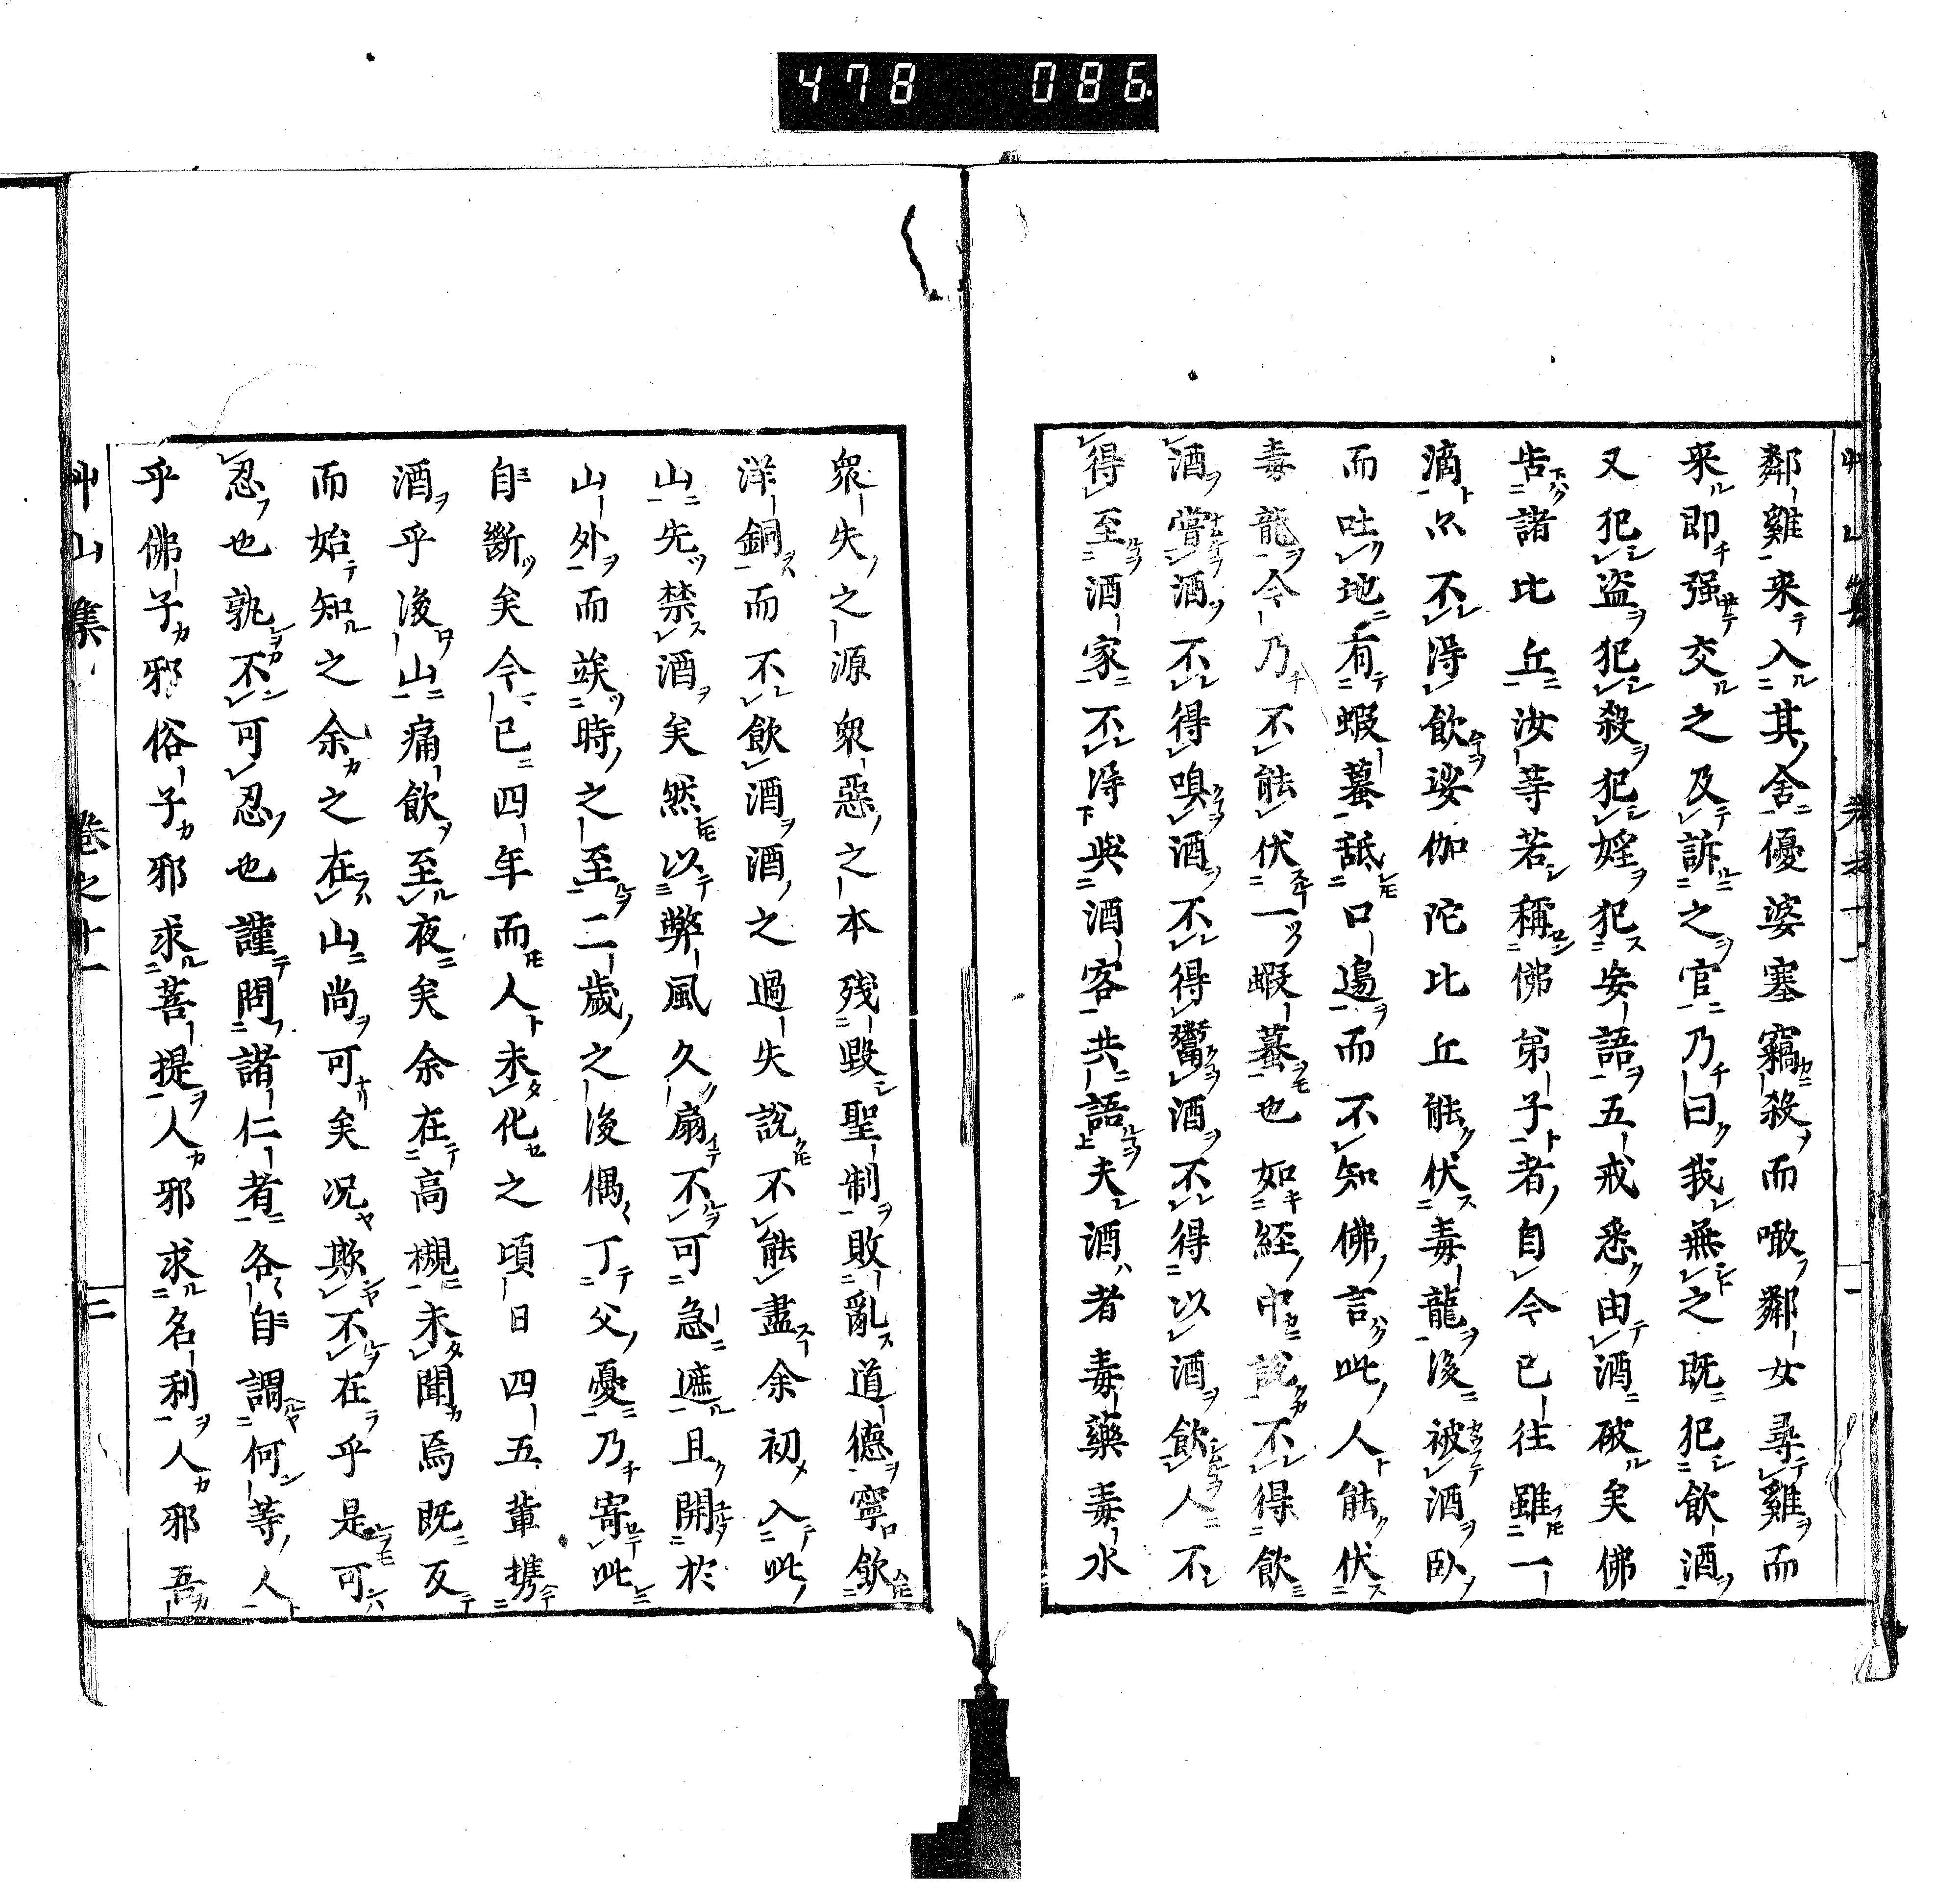 478 086
鄰雞来入其舍優婆塞竊殺而噉鄰女尋雞而
来即强交之及訴之官乃曰我無之既犯飲酒
又犯盗犯殺犯婬犯妄語五戒悉由酒破矣佛
告諸比丘汝等若稱佛弟子者自今已往雖一
滴亦不得飲娑伽陀比丘能伏毒龍後被酒臥
而吐地有蝦蟇舐口邊而不知佛言此人能伏
毒龍今乃不能伏一蝦蟇也如経中說不得飲
酒嘗酒不得嗅酒不得鬻酒不得以酒飲人不
得至酒家不得與酒客共語夫酒者毒藥毒水
衆失之源衆惡之本残毀聖制敗亂道德寧飲
洋銅而不飲酒酒之過失說不能盡余初入此
山先禁酒矣然以弊風久扇不可急遮且開於
山外而竢時之至二歲之後偶丁父憂乃寄此
自斷矣今已四年而人未化之頃日四五輩携
酒乎後山痛飲至夜矣余在高櫬未聞焉既反
而始知之余之在山尚可矣况欺不在乎是可
忍也孰不可忍也謹問諸仁者各自謂何等人
乎佛子邪俗子邪求菩提人邪求名利人邪吾
艸山集 卷之十一 二